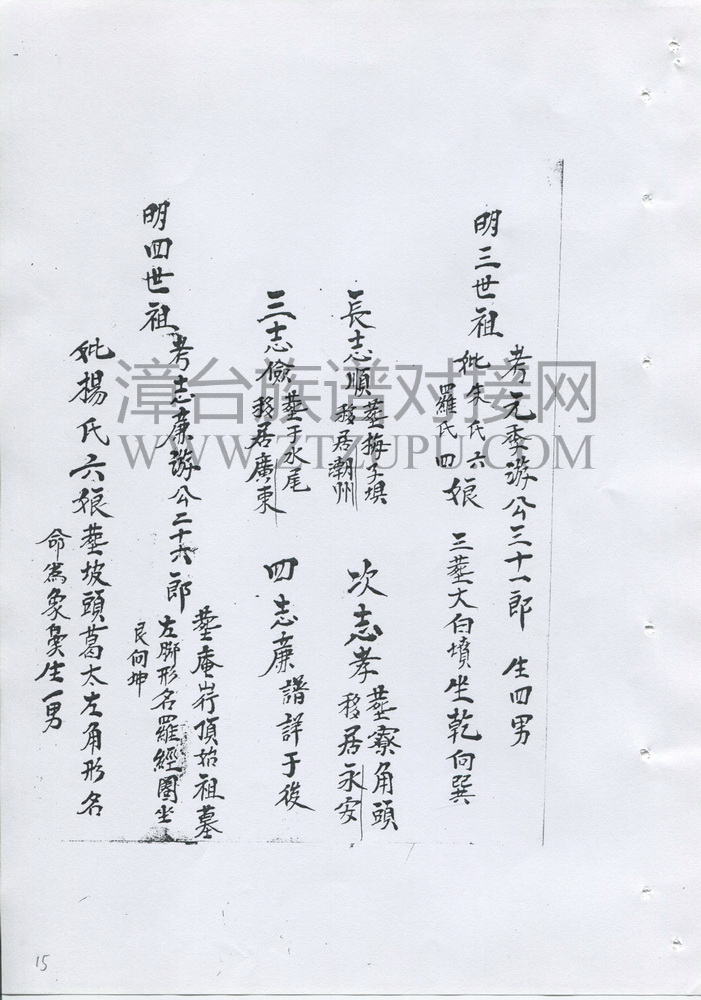 明三世祖
考元季游公三十一郎 生四男
妣朱氏六
羅氏四娘 三塟大白墳坐乾向巽
長志順塟梅子垻
移居潮州
次志孝塟寮角頭
移居永安
三志儉塟于水尾
移居廣東
四志廉譜詳于後
明四世祖
考志廉游公二十六郎
塟庵崗頂始祖墓
左脚形名羅經圈坐
艮向坤
妣楊氏六娘塟坡頭葛太左角形名
命為象鼻生一男
漳台族谱对接网
WWW.ZTZUPU.COM
15